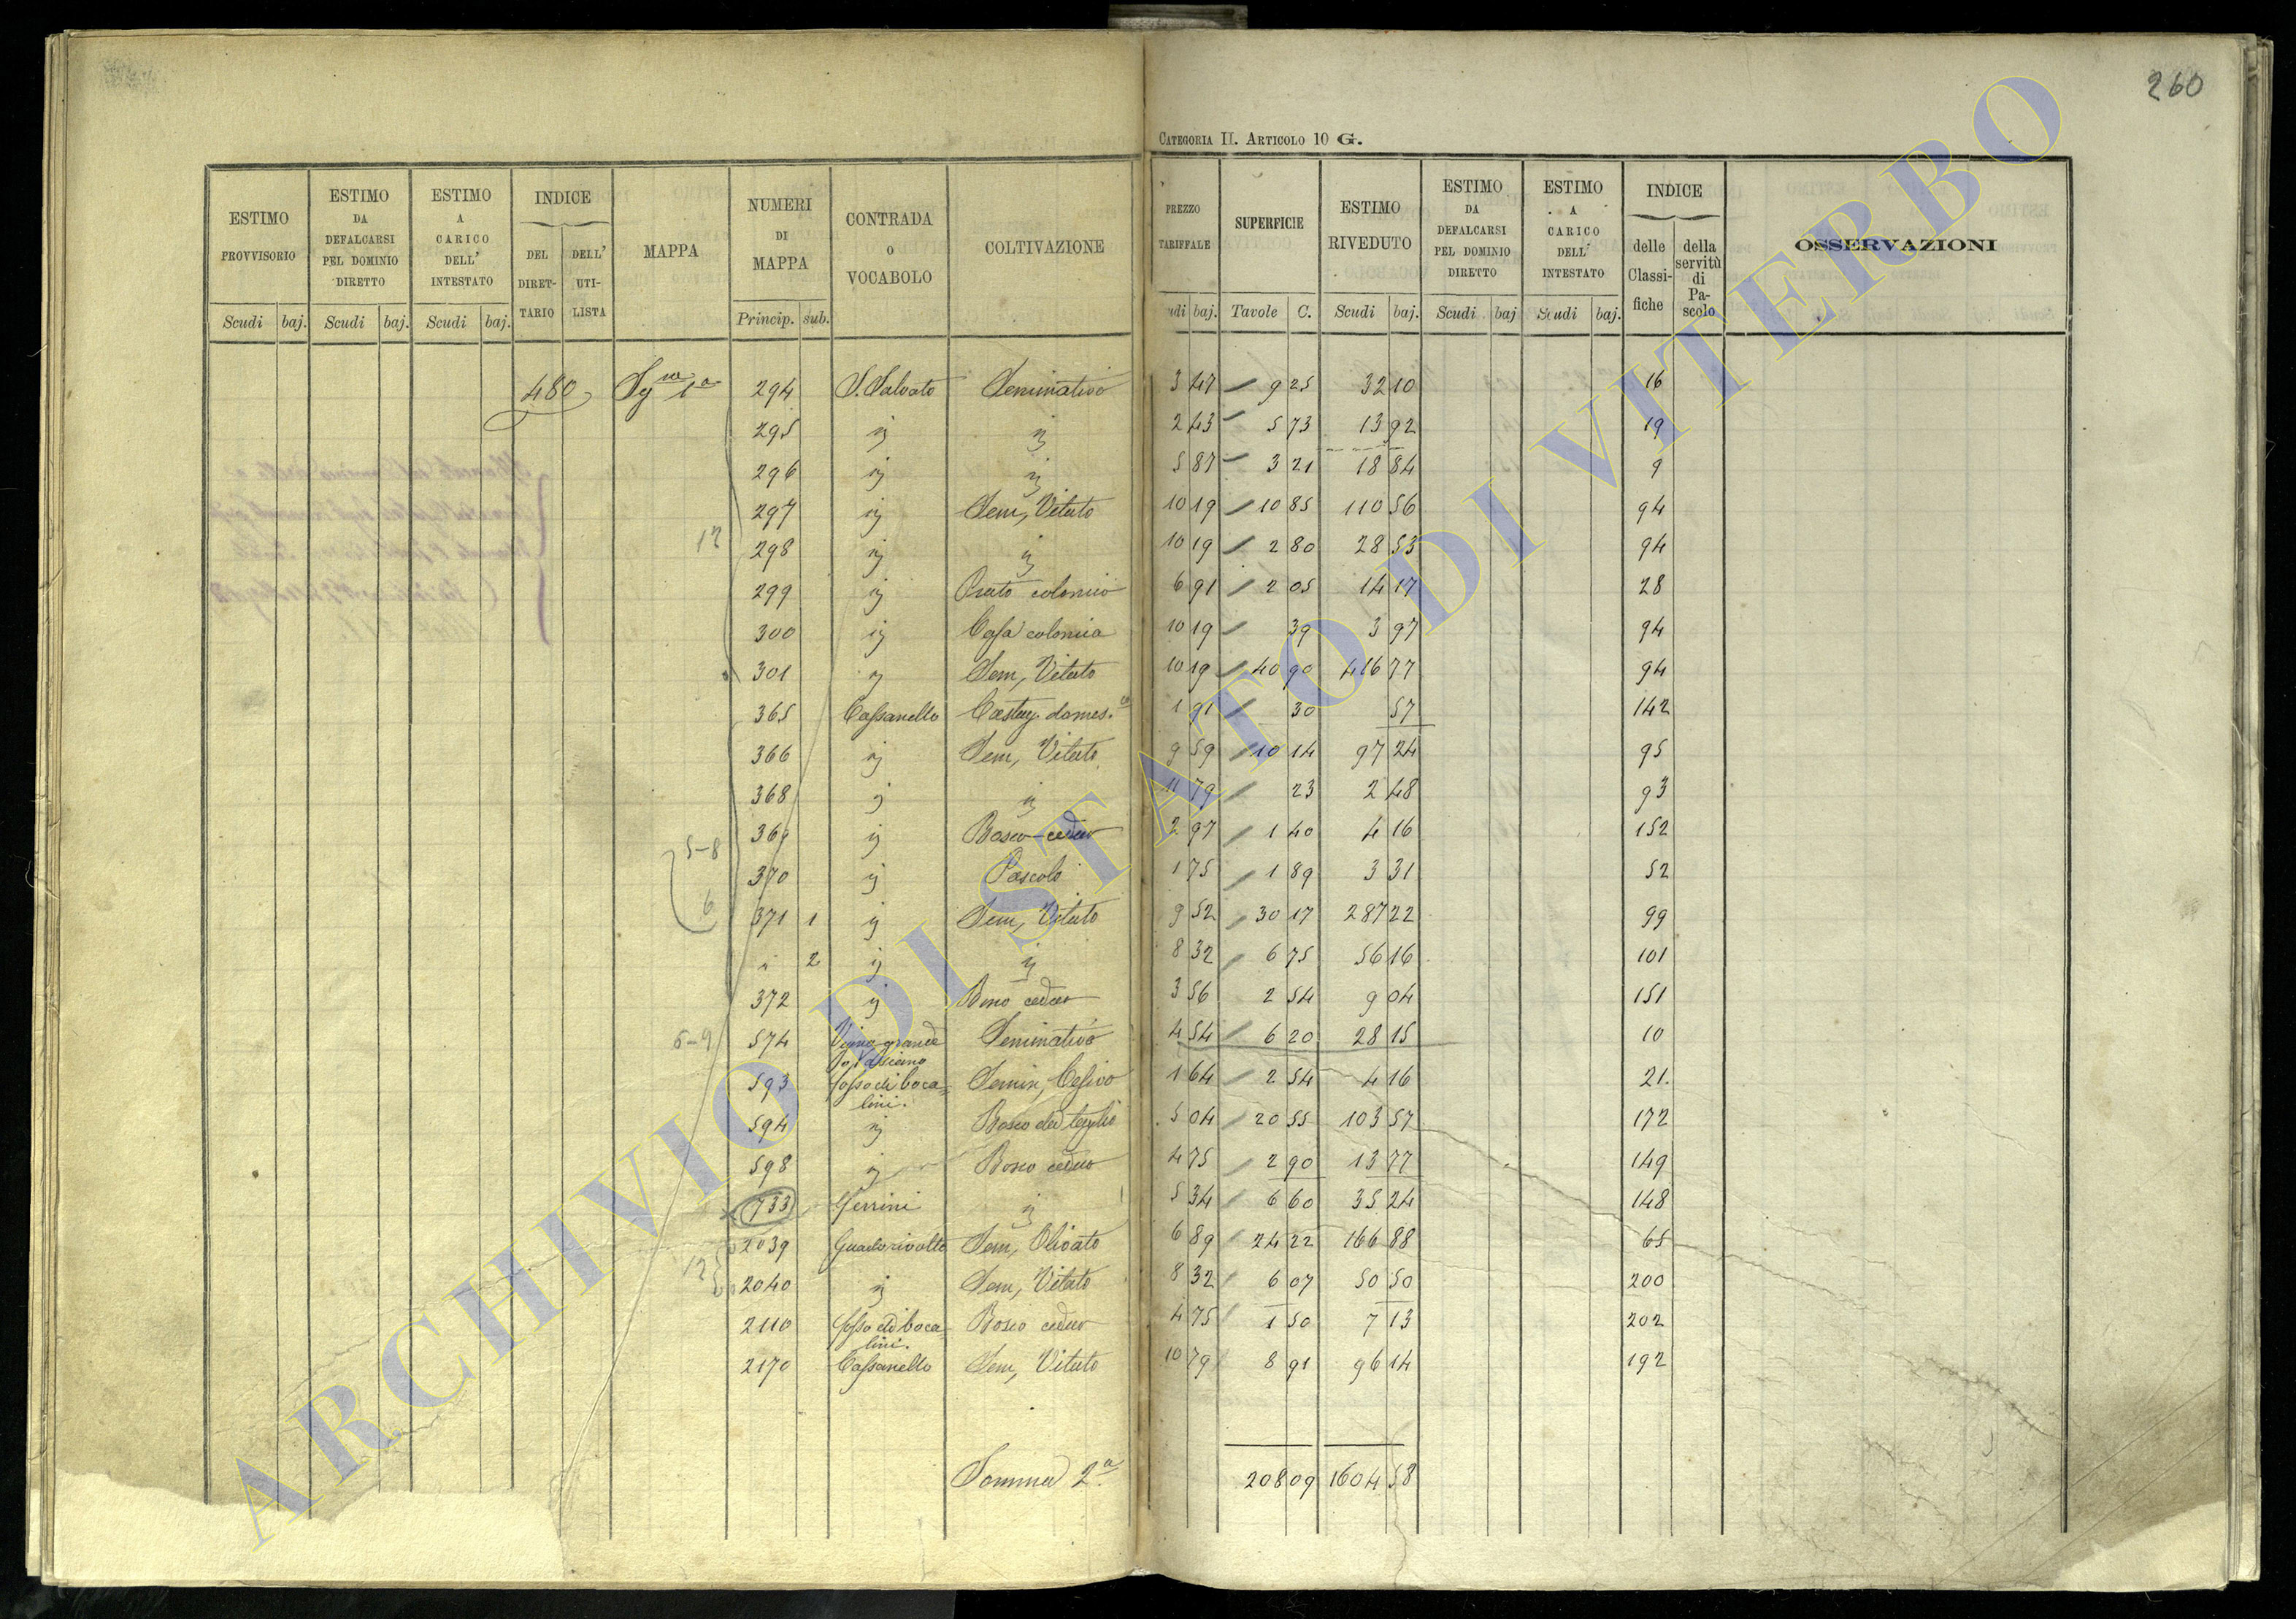 260
CATEGORIA II. ARTICOLO 10 G.
ESTIMO PROVVISORIO Scudi baj.
ESTIMO DA DEFALCARSI PEL DOMINIO DIRETTO Scudi baj.
ESTIMO A CARICO DELL' INTESTATO Scudi baj.
INDICE DEL DIRET-TARIO DELL' UTI-LISTA
MAPPA
NUMERI DI MAPPA Princip. sub.
CONTRADA o VOCABOLO
COLTIVAZIONE
PREZZO TARIFFALE udi baj.
SUPERFICIE Tavole C.
ESTIMO RIVEDUTO Scudi baj.
ESTIMO DA DEFALCARSI PEL DOMINIO DIRETTO Scudi baj
ESTIMO A CARICO DELL' INTESTATO Scudi baj.
INDICE delle Classi-fiche della servitù di Pa-scolo
OSSERVAZIONI
480 1a 294 S. Salvato Seminativo 3 47 9 25 32 10 16
295 ij ij 2 43 5 73 13 92 19
296 ij ij 5 87 3 21 18 84 9
297 ij Sem, Vitato 10 19 10 85 110 56 94
12 298 ij ij 10 19 2 80 28 53 94
299 ij Prato colonico 6 91 2 05 14 17 28
300 ij Casa colonica 10 19 39 3 97 94
301 ij Sem, Vitato 10 19 40 90 416 77 94
365 Cassanello Castag. domes.co 1 91 30 57 142
366 ij Sem, Vitato 9 59 10 14 97 24 95
368 ij ij 79 23 2 48 93
5-8 369 ij Bosco ceduo 2 97 1 40 4 16 152
370 ij Pascolo 1 75 1 89 3 31 52
6 371 1 ij Sem, Vitato 9 52 30 17 287 22 99
" 2 ij ij 8 32 6 75 56 16 101
372 ij Bosco ceduo 3 56 2 54 9 04 151
6-9 574 Vigna grande Seminativo 4 54 6 20 28 15 10
593 fosso di boca=lini. Semin, Cesivo 1 64 2 54 4 16 21.
594 ij Bosco da taglio 5 04 20 55 103 57 172
598 ij Bosco ceduo 4 75 2 90 13 77 149
733 Gerrini ij 5 34 6 60 35 24 148
2039 Guadorivolto Sem, Olivato 6 89 24 22 166 88 65
12 2040 ij Sem, Vitato 8 32 6 07 50 50 200
2110 fosso di boca=lini. Bosco ceduo 4 75 1 50 7 13 202
2170 Cassanello Sem, Vitato 10 79 8 91 96 14 192
Somma 2.a 208 09 1604 58
ARCHIVIO DI STATO DI VITERBO